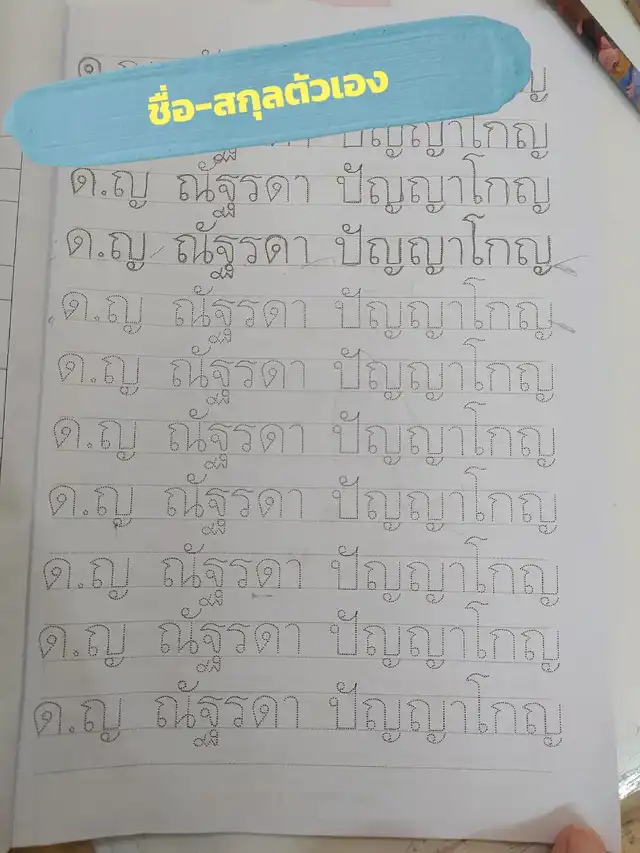 ชื่อ-สกุลตัวเอง
ปัญญาโกญ
ด.ญ ณัฐรดา ปัญญาโกญ
ด.ญ ณัฐรดา ปัญญาโกญ
ด.ญ ณัฐรดา ปัญญาโกญ
ด.ญ ณัฐรดา ปัญญาโกญ
ด.ญ ณัฐรดา ปัญญาโกญ
ด.ญ ณัฐรดา ปัญญาโกญ
ด.ญ ณัฐรดา ปัญญาโกญ
ด.ญ ณัฐรดา ปัญญาโกญ
ด.ญ ณัฐรดา ปัญญาโกญ